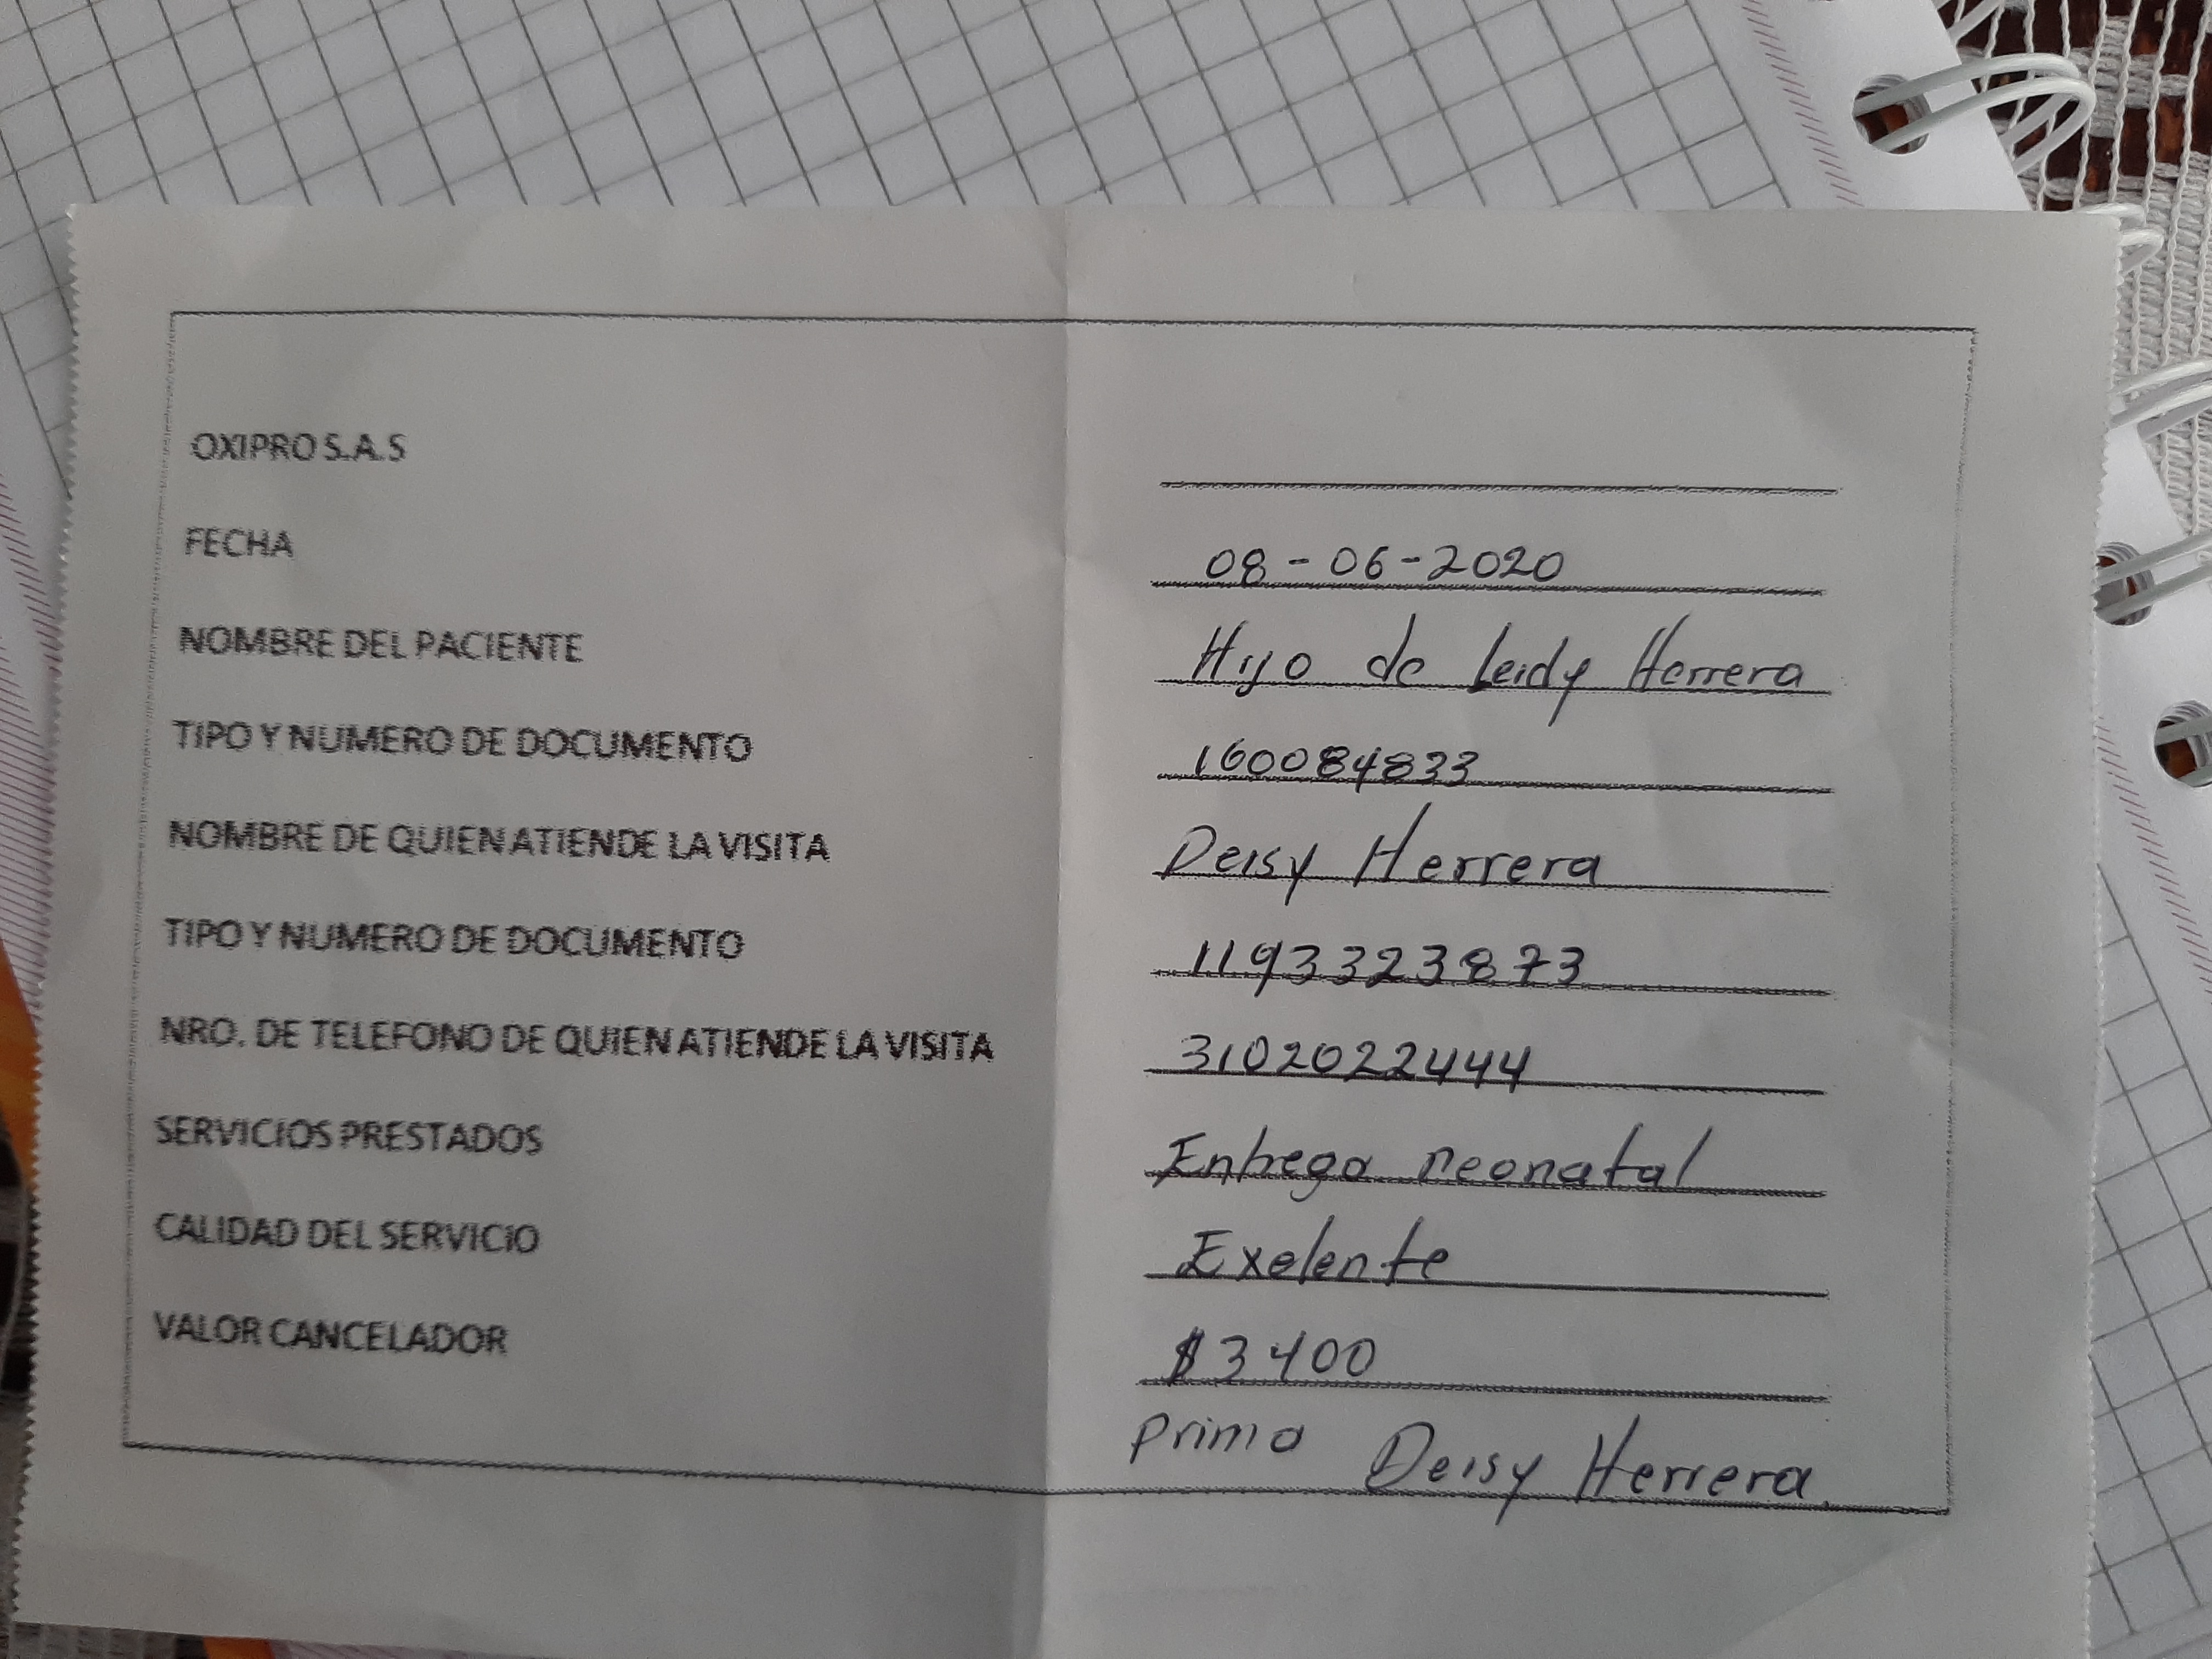 OXIPRO S.A.S
FECHA 08-06-2020
NOMBRE DEL PACIENTE Hijo de Leidy Herrera
TIPO Y NUMERO DE DOCUMENTO 160084833
NOMBRE DE QUIEN ATIENDE LA VISITA Deisy Herrera
TIPO Y NUMERO DE DOCUMENTO 1193323873
NRO. DE TELEFONO DE QUIEN ATIENDE LA VISITA 3102022444
SERVICIOS PRESTADOS Entrega neonatal
CALIDAD DEL SERVICIO Exelente
VALOR CANCELADOR $3400
Prima Deisy Herrera